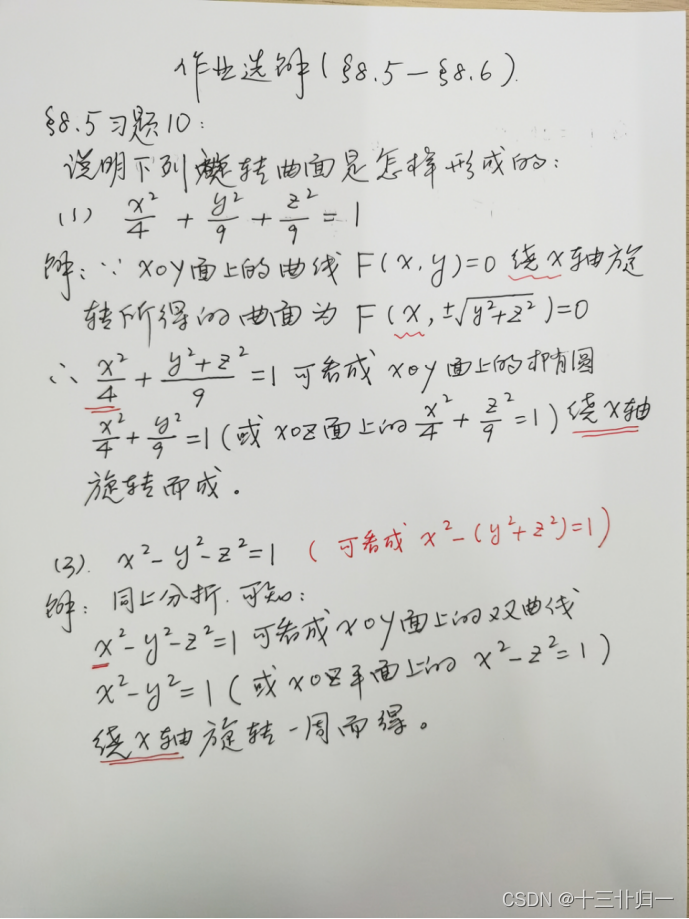 作业选解(§8.5—§8.6).
§8.5 习题10:
说明下列旋转曲面是怎样形成的:
(1) x²/4 + y²/9 + z²/9 = 1
解: ∵ xoy面上的曲线 F(x,y)=0 绕x轴旋
转所得的曲面为 F(x, ±√(y²+z²))=0
∴ x²/4 + (y²+z²)/9 = 1 可看成 xoy面上的椭圆
x²/4 + y²/9 = 1 (或 xoz面上的 x²/4 + z²/9 = 1) 绕x轴
旋转而成.
(3). x²-y²-z²=1 (可看成 x²-(y²+z²)=1)
解: 同上分析.可知:
x²-y²-z²=1 可看成xoy面上的双曲线
x²-y²=1 (或 xoz平面上的 x²-z²=1)
绕x轴 旋转一周而得。
CSDN @十三卝归一